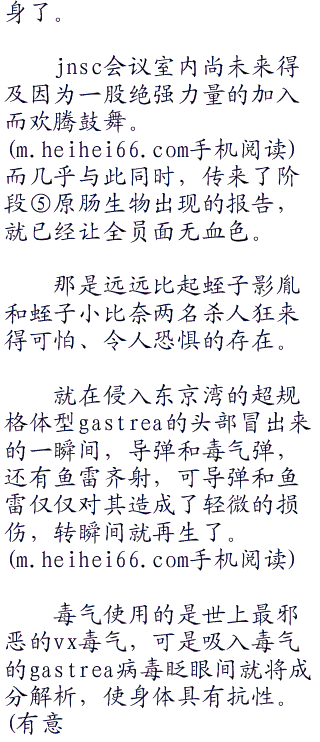 身了。
jnsc会议室内尚未来得
及因为一股绝强力量的加入
而欢腾鼓舞。
(m.heihei66.com手机阅读)
而几乎与此同时，传来了阶
段⑤原肠生物出现的报告，
就已经让全员面无血色。
那是远远比起蛭子影胤
和蛭子小比奈两名杀人狂来
得可怕、令人恐惧的存在。
就在侵入东京湾的超规
格体型gastrea的头部冒出来
的一瞬间，导弹和毒气弹，
还有鱼雷齐射，可导弹和鱼
雷仅仅对其造成了轻微的损
伤，转瞬间就再生了。
(m.heihei66.com手机阅读)
毒气使用的是世上最邪
恶的vx毒气，可是吸入毒气
的gastrea病毒眨眼间就将成
分解析，使身体具有抗性。
(有意